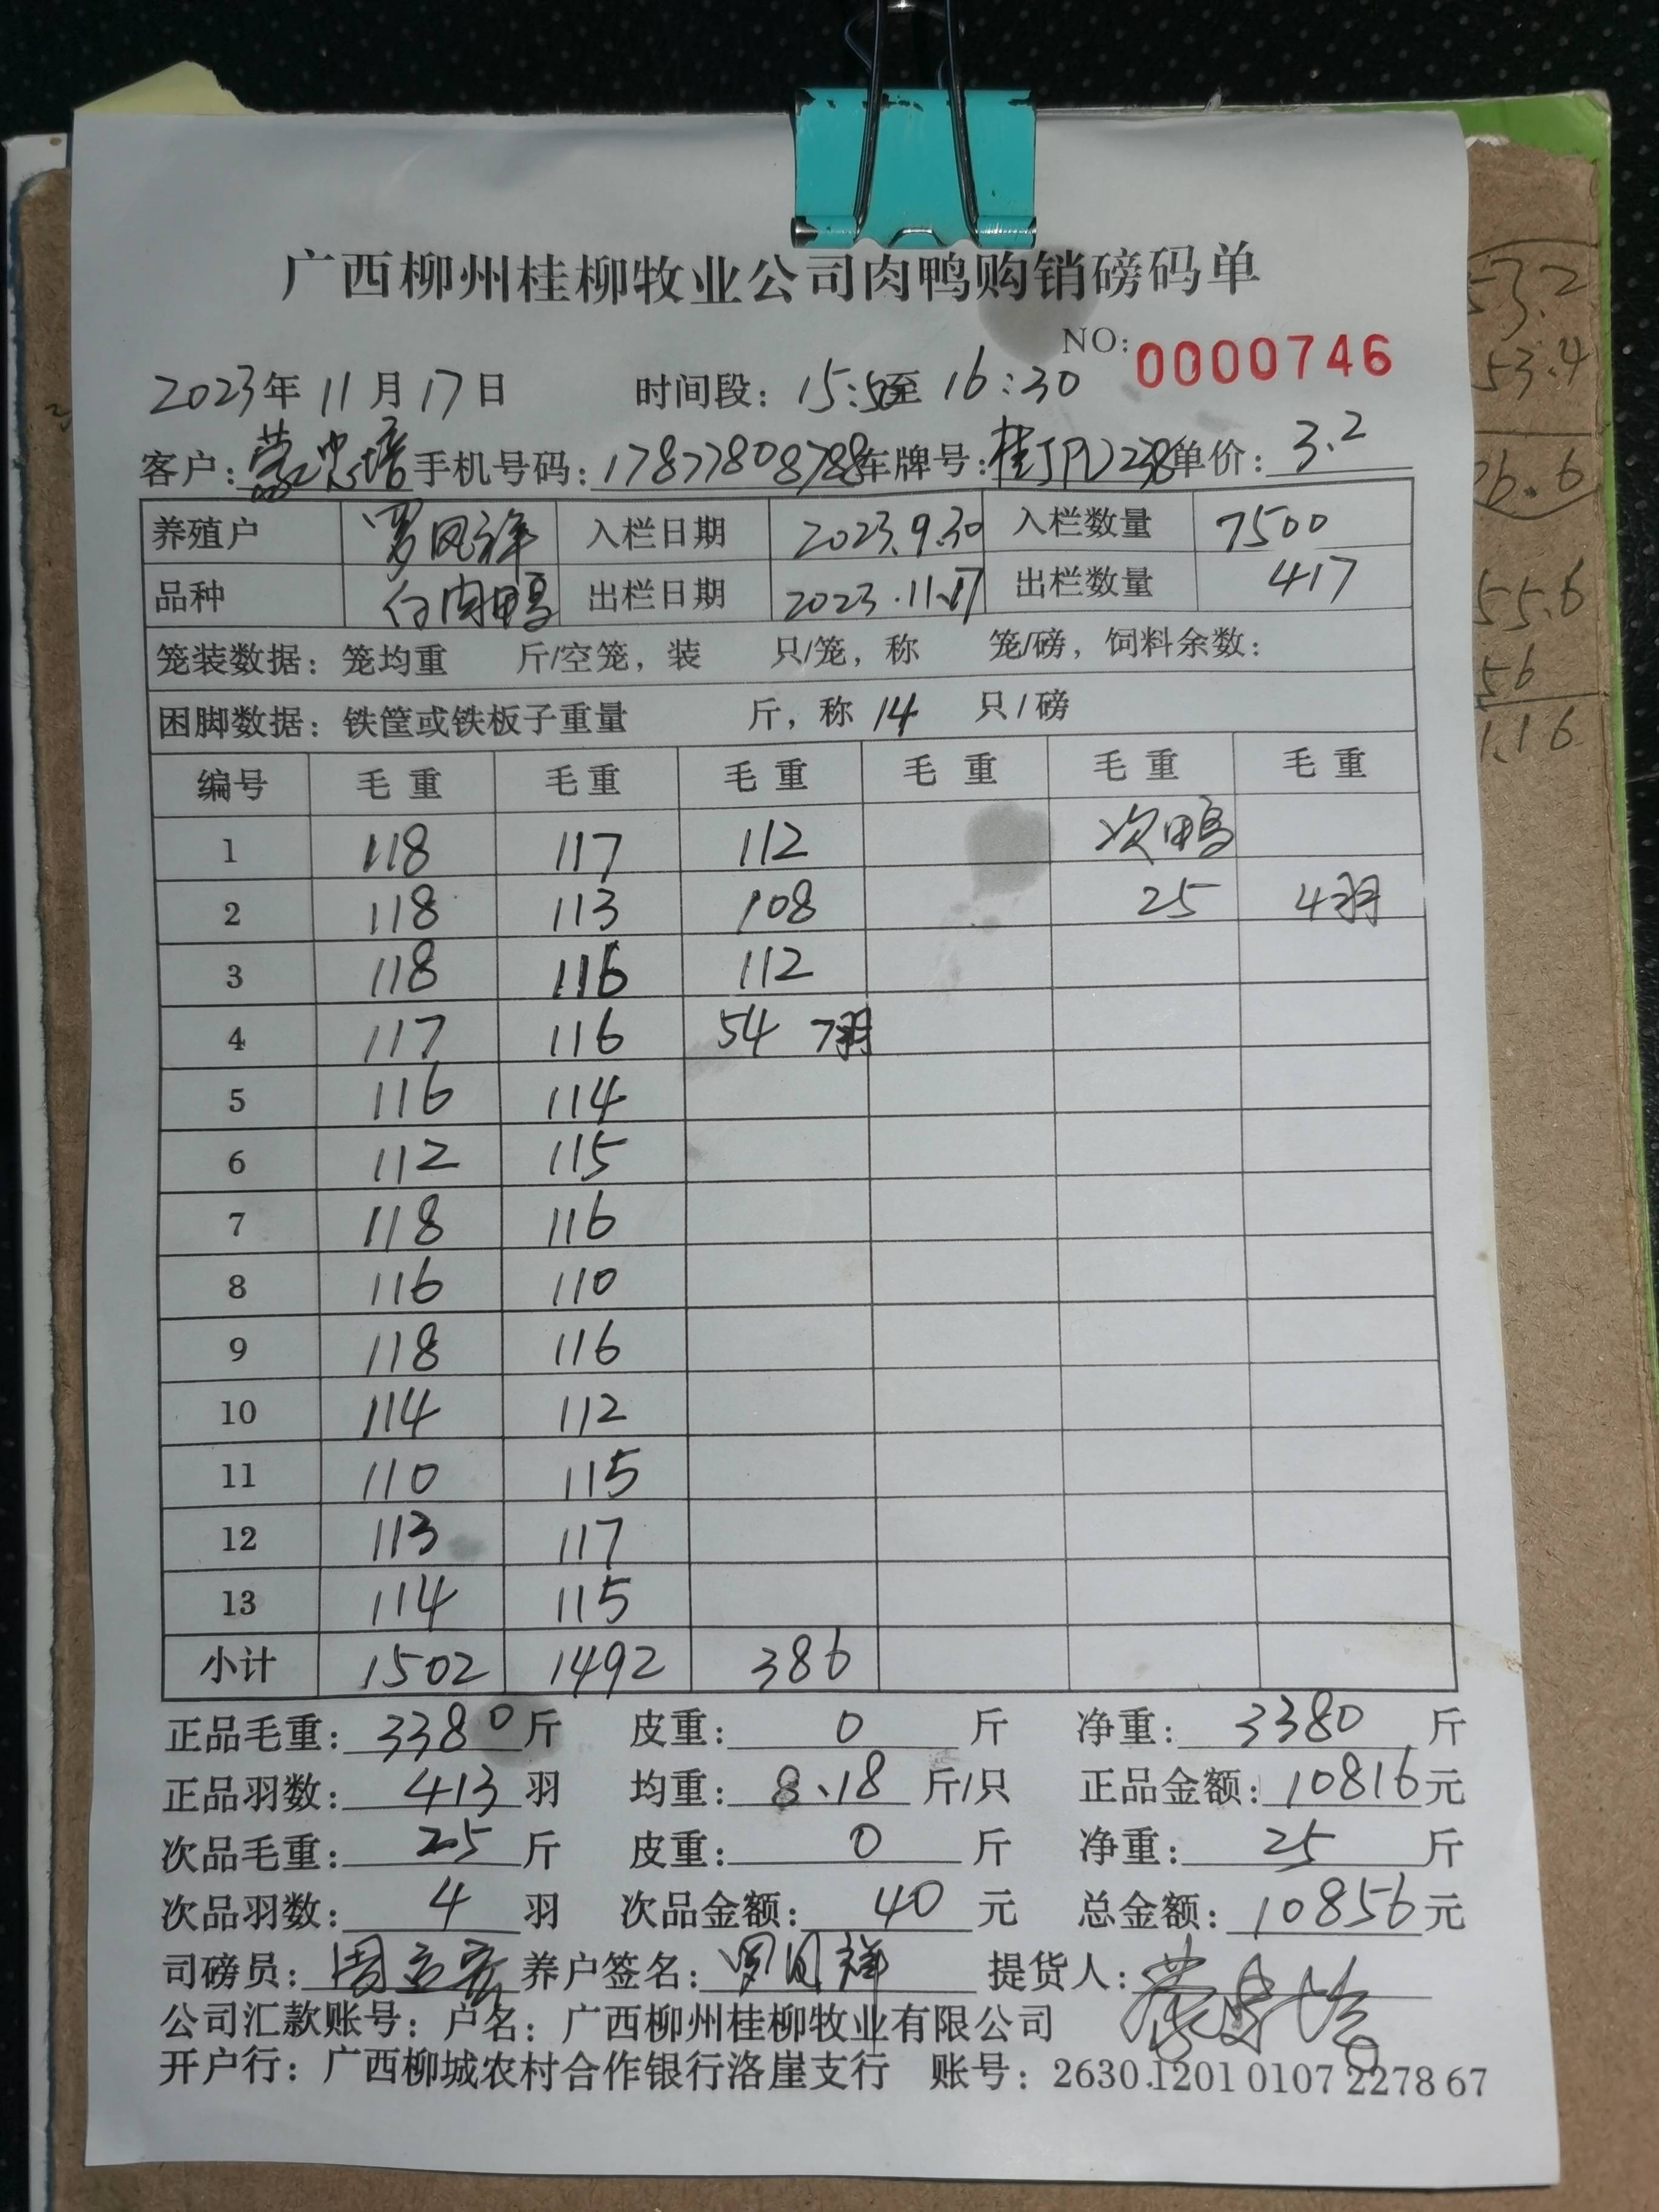 广西柳州桂柳牧业公司肉鸭购销磅码单
NO: 0000746
2023年 11月 17日 时间段: 15:50至 16:30
客户: 蒙忠培 手机号码: 17877808788 车牌号: 单价: 3.2
养殖户 罗凤祥 入栏日期 2023.9.30 入栏数量 7500
品种 白肉鸭 出栏日期 2023.11.17 出栏数量 417
笼装数据: 笼均重 斤/空笼, 装 只/笼, 称 笼/磅, 饲料余数:
困脚数据: 铁筐或铁板子重量 斤, 称 14 只/磅
编号 毛重 毛重 毛重 毛重 毛重 毛重
1 118 117 112 次鸭
2 118 113 108 25 4羽
3 118 116 112
4 117 116 54 7羽
5 116 114
6 112 115
7 118 116
8 116 110
9 118 116
10 114 112
11 110 115
12 113 117
13 114 115
小计 1502 1492 386
正品毛重: 3380 斤 皮重: 0 斤 净重: 3380 斤
正品羽数: 413 羽 均重: 8.18 斤/只 正品金额: 10816元
次品毛重: 25 斤 皮重: 0 斤 净重: 25 斤
次品羽数: 4 羽 次品金额: 40 元 总金额: 10856元
司磅员: 养户签名: 罗凤祥 提货人:
公司汇款账号: 户名: 广西柳州桂柳牧业有限公司
开户行: 广西柳城农村合作银行洛崖支行 账号: 2630 1201 0107 2278 67
53.2
53.4
26.6
55.6
56
1.16